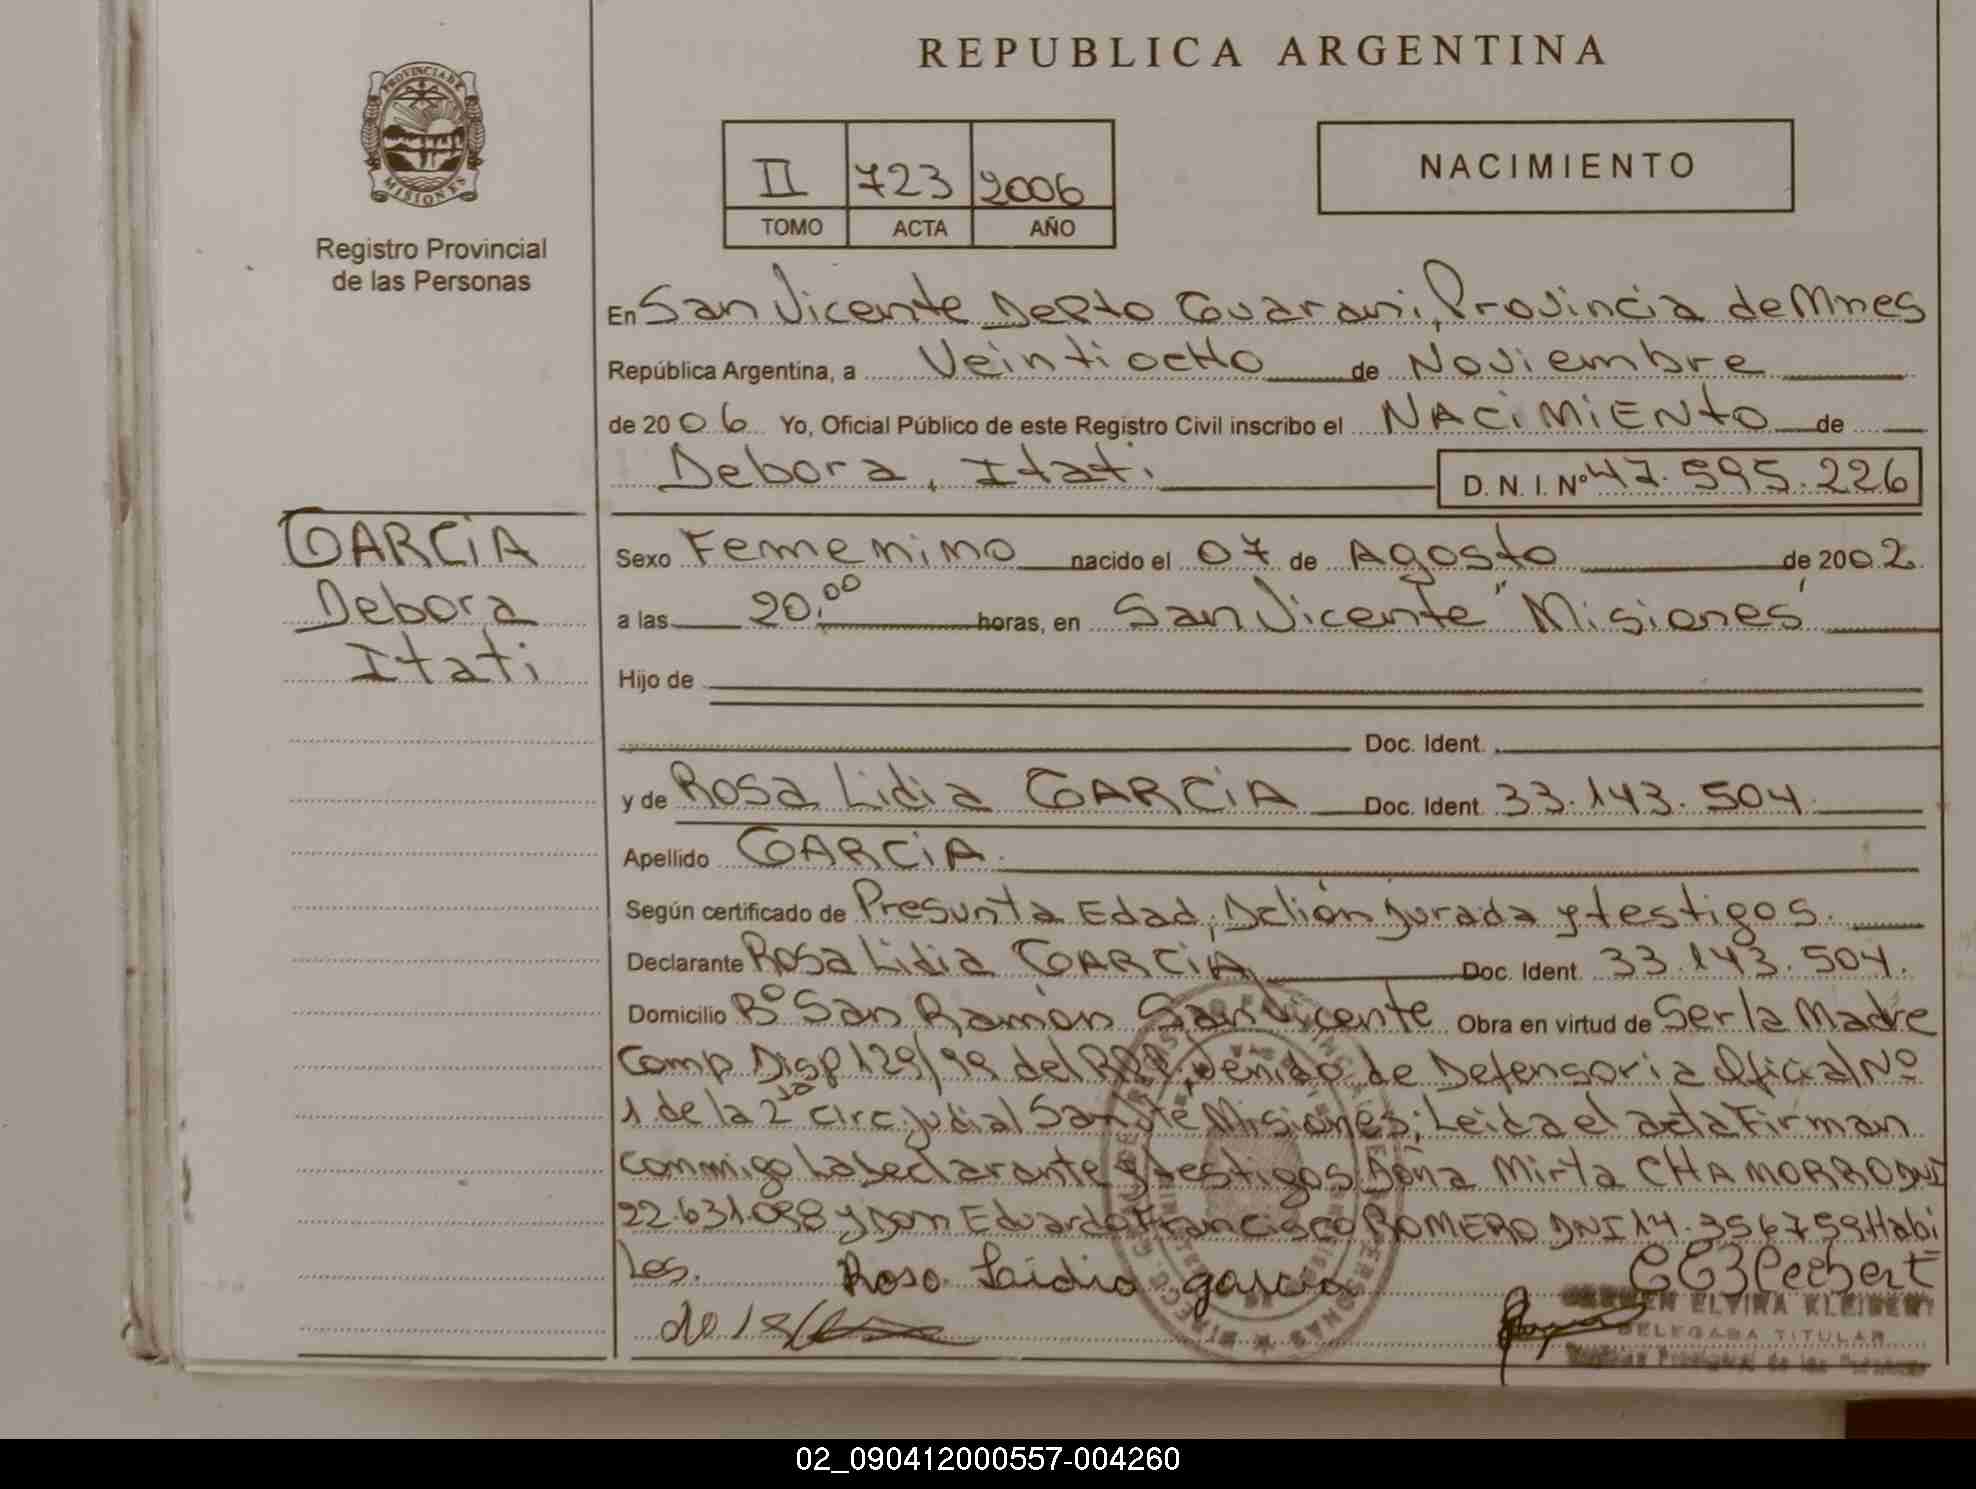 REPUBLICA ARGENTINA
PROVINCIA DE
MISIONES
Registro Provincial
de las Personas
II 723 2006
TOMO ACTA AÑO
NACIMIENTO
En San Vicente Depto Guarani, Provincia de Mnes
República Argentina, a Veintiocho de Noviembre
de 2006 Yo, Oficial Público de este Registro Civil inscribo el NACiMiENto de
Debora, Itati. D. N. I. Nº 47.595.226
GARCiA
Debora
Itati
Sexo Femenino nacido el 07 de Agosto de 2002.
a las 20:00 horas, en San Vicente "Misiones"
Hijo de
Doc. Ident.
y de Rosa Lidia GARCiA Doc. Ident. 33.143.504.
Apellido GARCiA.
Según certificado de Presunta Edad, Dclión jurada y testigos.
Declarante Rosa Lidia GARCiA Doc. Ident. 33.143.504.
Domicilio Bº San Ramón San Vicente Obra en virtud de Ser la Madre
Comp Disp 129/99 del RPP, venido de Defensoria Oficial Nº
1 de la 2da circ. Judial San Vte Misiones; Leida el acta Firman
conmigo La Declarante y testigos Doña Mirta CHAMORRO DNI
22.631.098 y Don Eduardo Francisco ROMERO DNI 14.356759 Habi
les. Rosa Laidia garcia
ELVIRA
DELEGADA TITULAR
de las
02_090412000557-004260